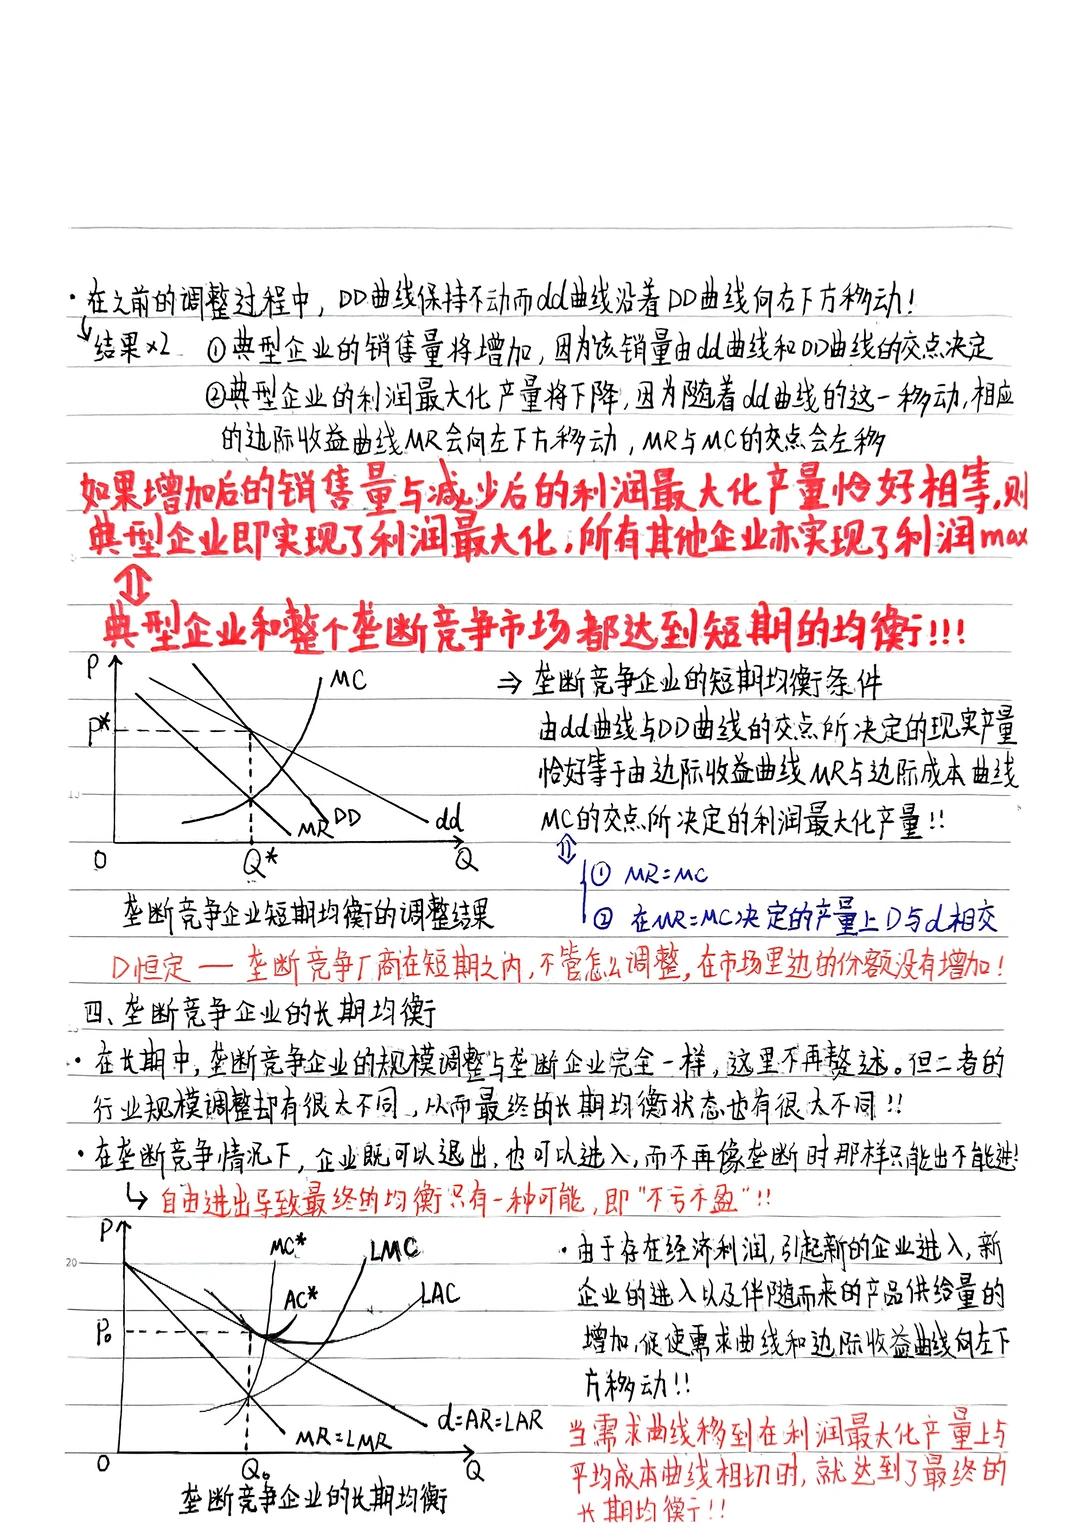 ·在之前的调整过程中，DD曲线保持不动而dd曲线沿着DD曲线向右下方移动！
结果×2 ①典型企业的销售量将增加，因为该销量由dd曲线和DD曲线的交点决定
②典型企业的利润最大化产量将下降，因为随着dd曲线的这一移动，相应
的边际收益曲线MR会向左下方移动，MR与MC的交点会左移
如果增加后的销售量与减少后的利润最大化产量恰好相等，则
典型企业即实现了利润最大化，所有其他企业亦实现了利润max
⇕
典型企业和整个垄断竞争市场都达到短期的均衡！！！
P
MC
P*
MR
DD
dd
O
Q*
Q
垄断竞争企业短期均衡的调整结果
⇒ 垄断竞争企业的短期均衡条件
由dd曲线与DD曲线的交点所决定的现实产量
恰好等于由边际收益曲线MR与边际成本曲线
MC的交点所决定的利润最大化产量！！
⇕
① MR=MC
② 在MR=MC决定的产量上D与d相交
D恒定 — 垄断竞争厂商在短期之内，不管怎么调整，在市场里边的份额没有增加！
四、垄断竞争企业的长期均衡
·在长期中，垄断竞争企业的规模调整与垄断企业完全一样，这里不再赘述。但二者的
行业规模调整却有很大不同，从而最终的长期均衡状态也有很大不同！！
·在垄断竞争情况下，企业既可以退出，也可以进入，而不再像垄断时那样只能出不能进！
↳ 自由进出导致最终的均衡只有一种可能，即“不亏不盈”！！
P
MC*
LMC
AC*
LAC
P₀
d=AR=LAR
MR=LMR
O
Q₀
Q
垄断竞争企业的长期均衡
·由于存在经济利润，引起新的企业进入，新
企业的进入以及伴随而来的产品供给量的
增加，促使需求曲线和边际收益曲线向左下
方移动！！
当需求曲线移到在利润最大化产量上与
平均成本曲线相切时，就达到了最终的
长期均衡！！
20